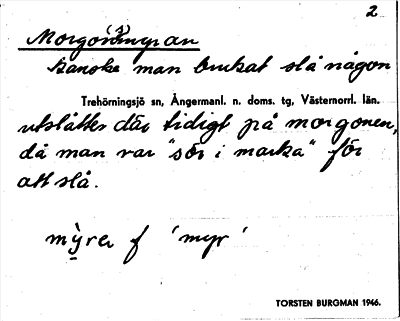 2
Morgon(s)myran
Kanske man brukat slå någon
Trehörningsjö sn, Ångermanl. n. doms. tg, Västernorrl. län.
utslåtter där tidigt på morgonen,
då man var "sör i marka" för
att slå.
mẏ̠rer f 'myr'
TORSTEN BURGMAN 1946.